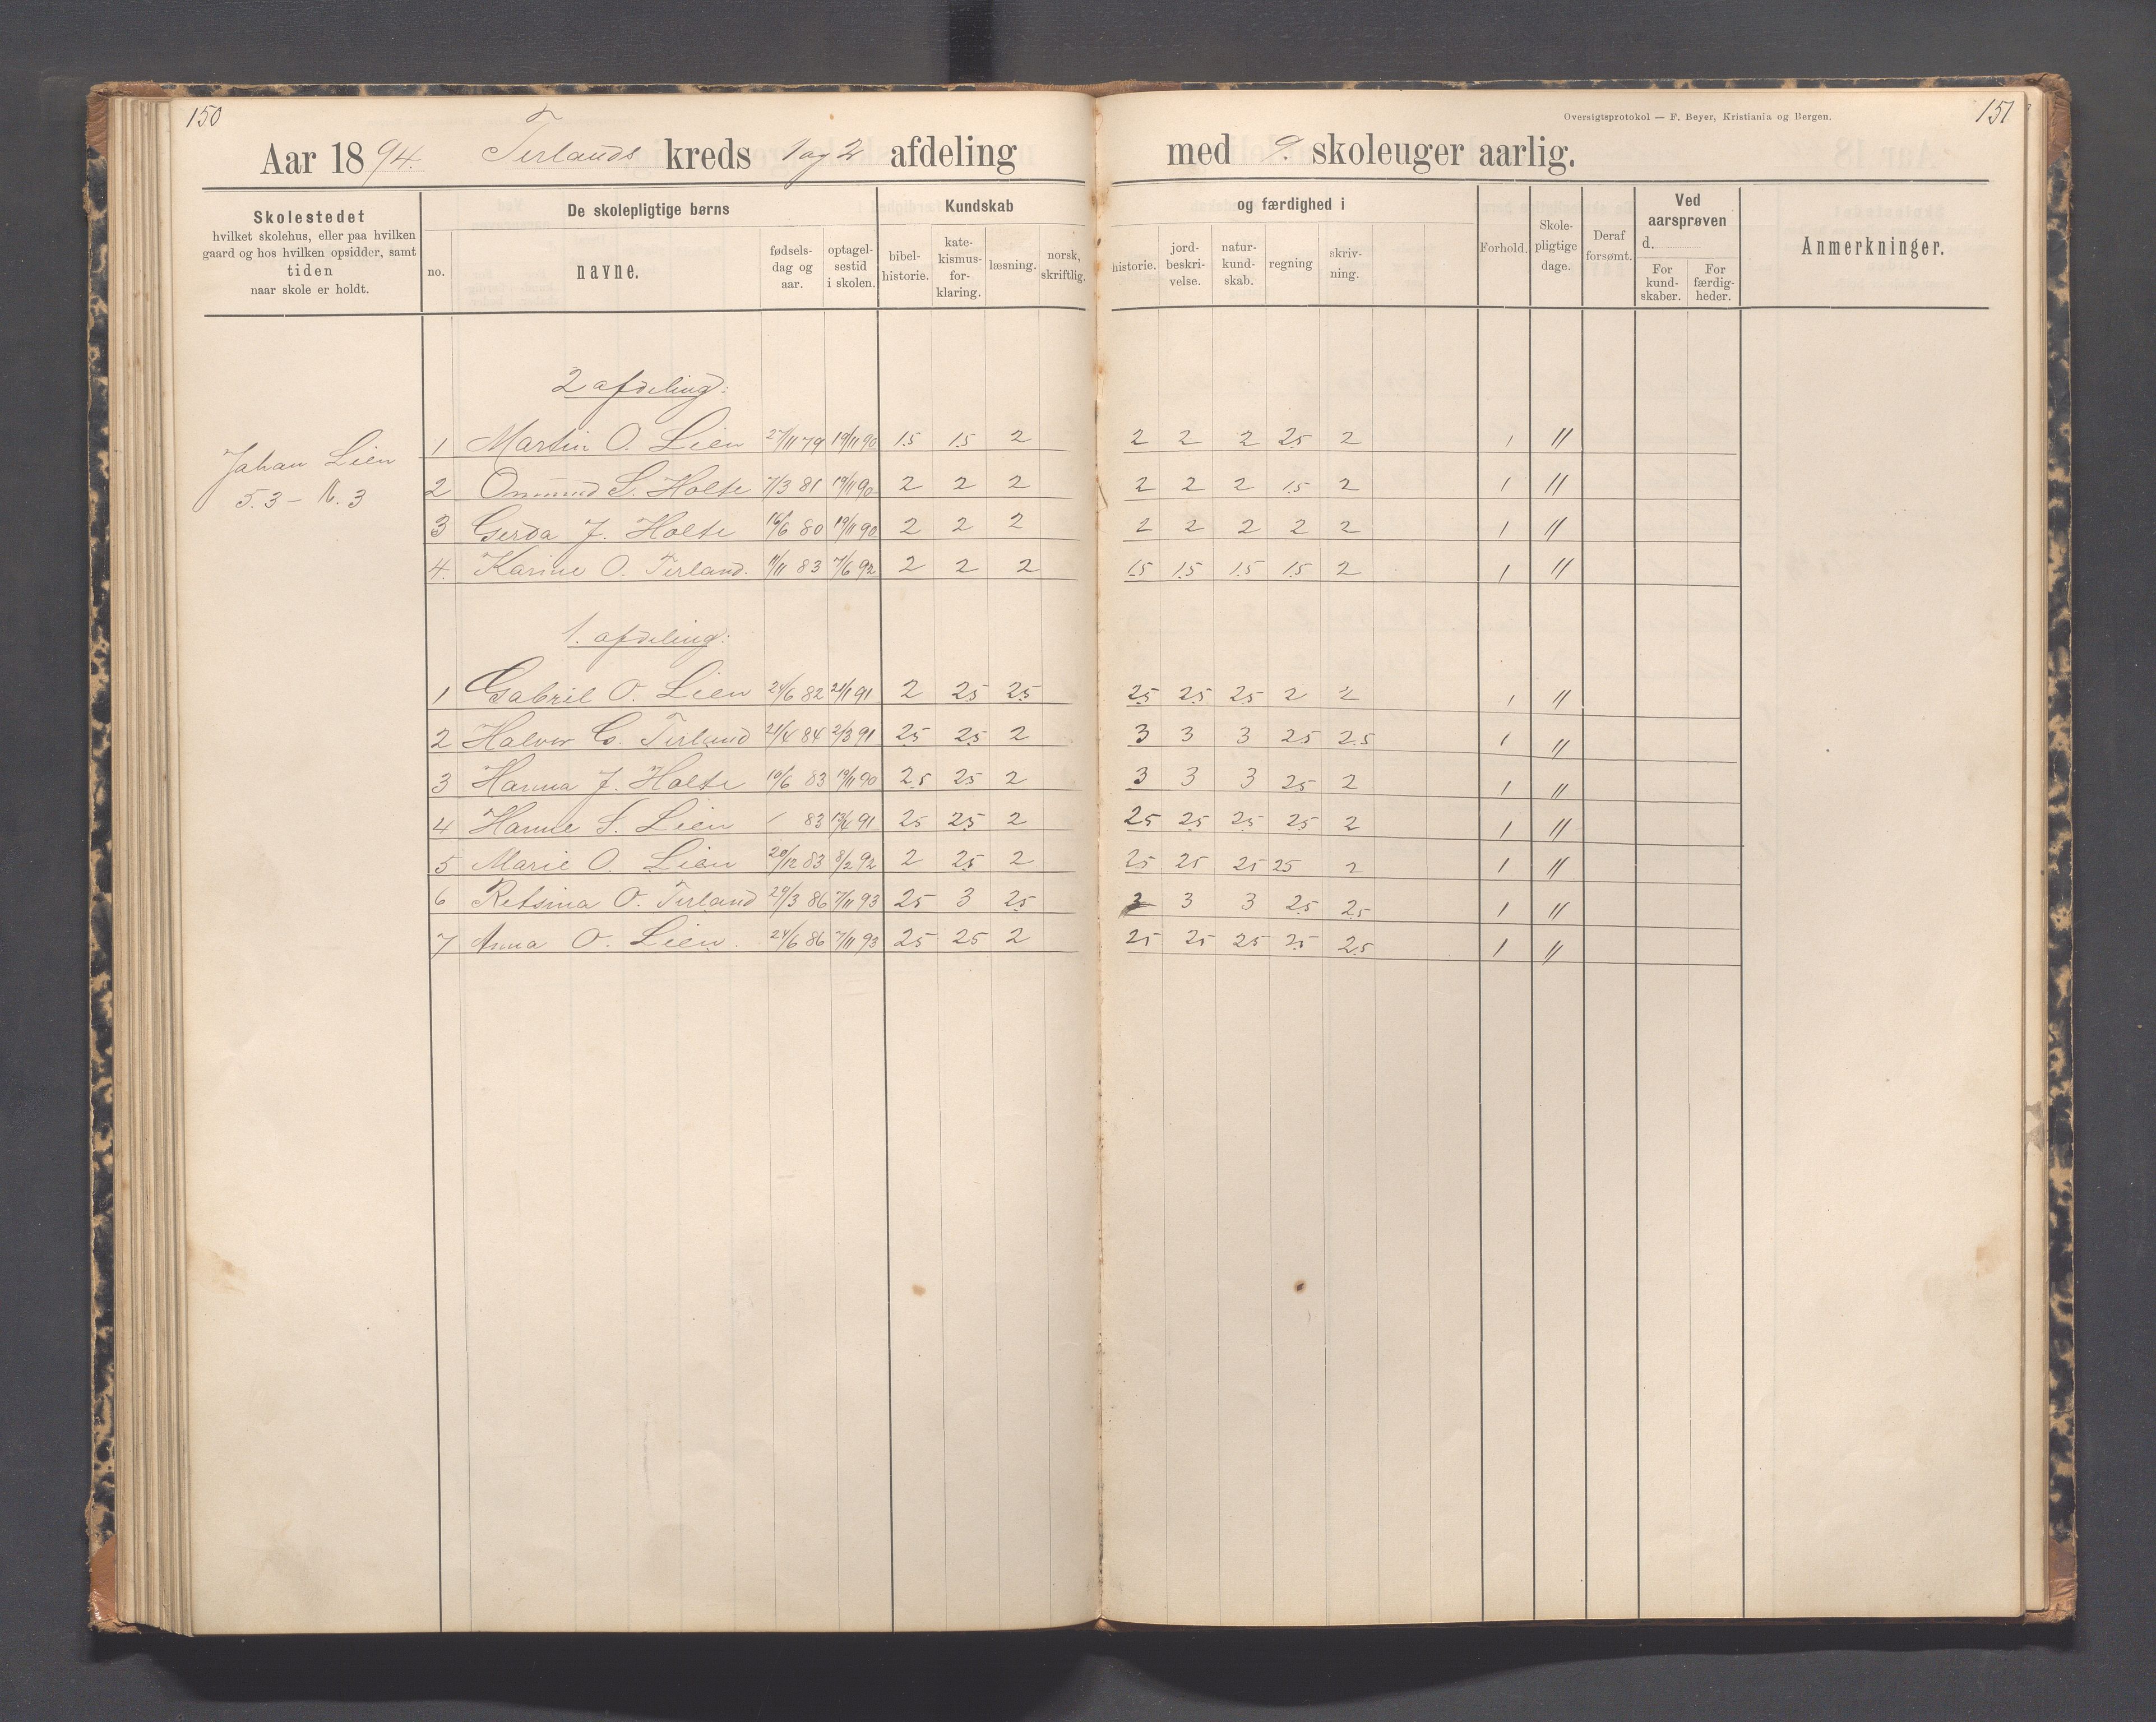 150
Aar 1894. Tirlands kreds 1 og 2 afdeling
Skolestedet
hvilket skolehus, eller paa hvilken
gaard og hos hvilken opsidder, samt
tiden
naar skole er holdt.
De skolepligtige børns
no.
navne.
fødsels-
dag og
aar.
optagel-
sestid
i skolen.
Kundskab
bibel-
historie.
kate-
kismus-
for-
klaring.
læsning.
norsk,
skriftlig.
2 afdeling:
Johan Lien
5.3 – 16.3
1 Martin O. Lien 27/11 79 19/11 90 1.5 1.5 2
2 Ommund S. Holte 7/3 81 19/11 90 2 2 2
3 Gerda J. Holte 16/6 80 19/11 90 2 2 2
4. Karine O. Tirland. 11/11 83 7/6 92 2 2 2
1. afdeling:
1 Gabriel O. Lien 24/6 82 21/1 91 2 2.5 2.5
2 Halvor G. Tirland 21/4 84 2/3 91 2.5 2.5 2
3 Hanna J. Holte 10/6 83 19/11 90 2.5 2.5 2
4 Hanne S. Lien / 83 13/4 91 2.5 2.5 2
5 Marie O. Lien 20/12 83 8/2 92 2 2.5 2
6 Retsina O. Tirland 29/3 86 7/11 93 2.5 3 2.5
7 Anna O. Lien. 24/6 86 7/11 93 2.5 2.5 2
Oversigtsprotokol — F. Beyer, Kristiania og Bergen.
151
med 9. skoleuger aarlig.
og færdighed i
historie.
jord-
beskri-
velse.
natur-
kund-
skab.
regning
skriv-
ning.
Forhold.
Skole-
pligtige
dage.
Deraf
forsømt.
Ved
aarsprøven
d.
For
kund-
skaber.
For
færdig-
heder.
Anmerkninger.
2 2 2 2.5 2 1 "
2 2 2 1.5 2 1 "
2 2 2 2 2 1 "
1.5 1.5 1.5 1.5 2 1 "
2.5 2.5 2.5 2 2 1 "
3 3 3 2.5 2.5 1 "
3 3 3 2.5 2 1 "
2.5 2.5 2.5 2.5 2 1 "
2.5 2.5 2.5 2.5 2 1 "
3 3 3 2.5 2.5 1 "
2.5 2.5 2.5 2.5 2.5 1 "